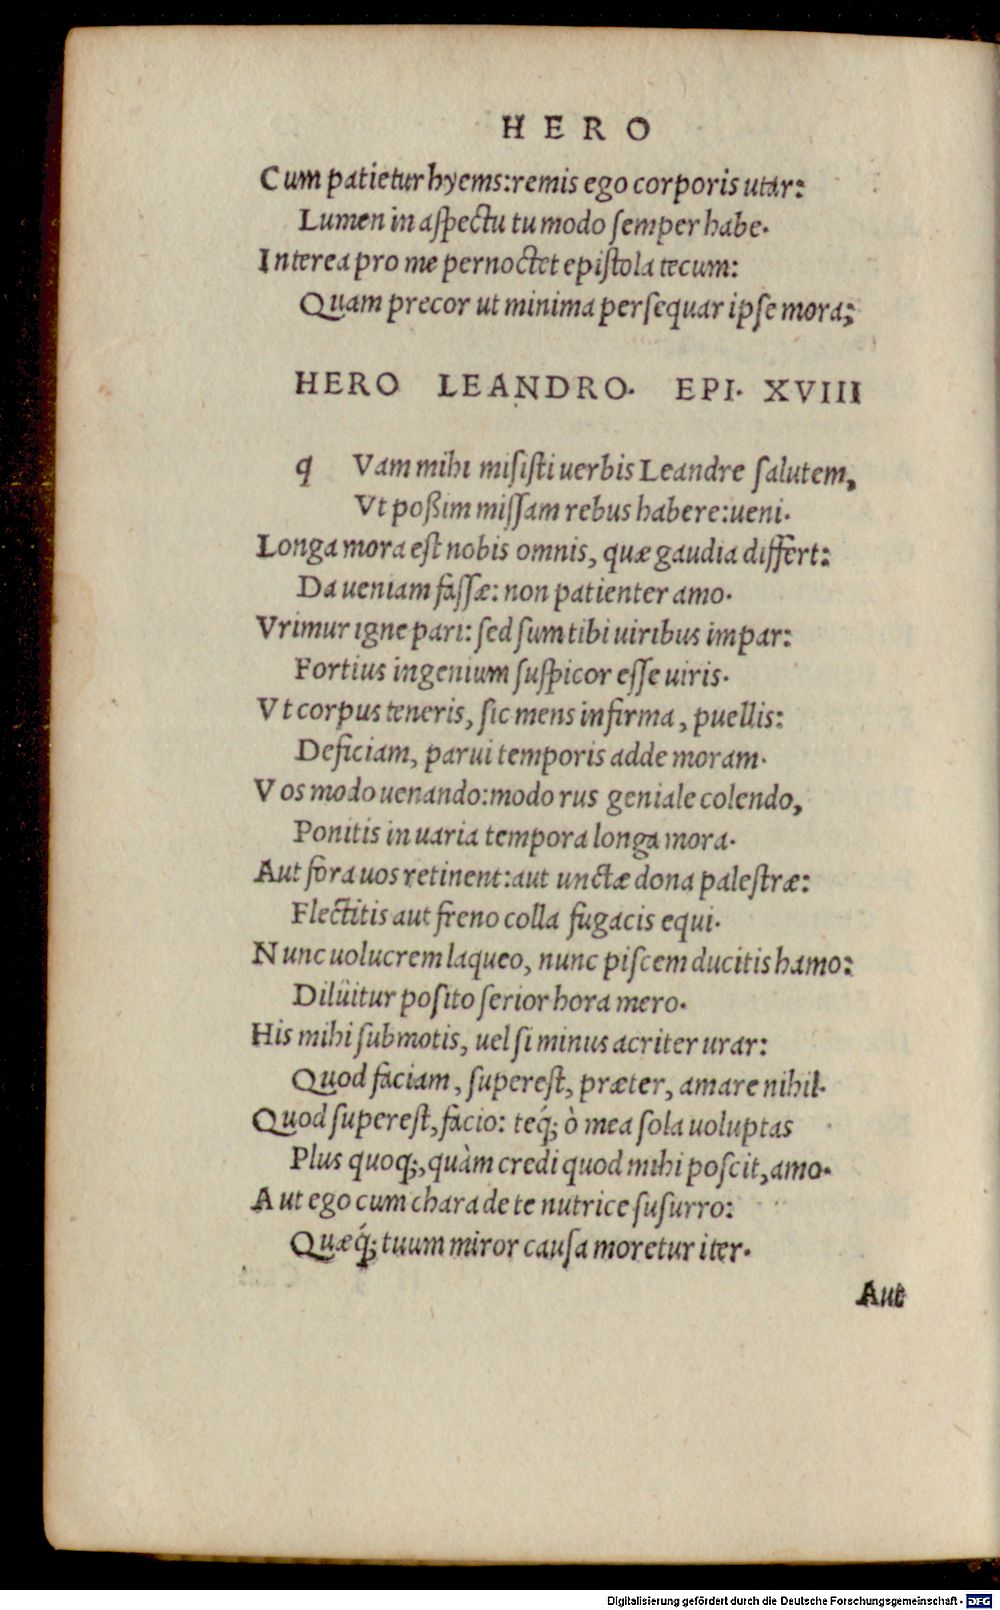 HERO
Cum patietur hyems: remis ego corporis utar:
Lumen in aspectu tu modo semper habe.
Interea pro me pernoctet epistola tecum:
Quam precor ut minima persequar ipse mora;
HERO LEANDRO. EPI. XVIII
q Vam mihi misisti uerbis Leandre salutem,
Vt poßim missam rebus habere: ueni.
Longa mora est nobis omnis, quæ gaudia differt:
Da ueniam fassæ: non patienter amo.
Vrimur igne pari: sed sum tibi uiribus impar:
Fortius ingenium suspicor esse uiris.
Vt corpus teneris, sic mens infirma, puellis:
Deficiam, parui temporis adde moram.
Vos modo uenando: modo rus geniale colendo,
Ponitis in uaria tempora longa mora.
Aut fora uos retinent: aut unctæ dona palestræ:
Flectitis aut freno colla fugacis equi.
Nunc uolucrem laqueo, nunc piscem ducitis hamo:
Dilüitur posito serior hora mero.
His mihi submotis, uel si minus acriter urar:
Quod faciam, superest, præter, amare nihil.
Quod superest, facio: teq́; ò mea sola uoluptas
Plus quoq;, quàm credi quod mihi poscit, amo.
Aut ego cum chara de te nutrice susurro:
Quæq́; tuum miror causa moretur iter.
Aut
Digitalisierung gefördert durch die Deutsche Forschungsgemeinschaft - DFG